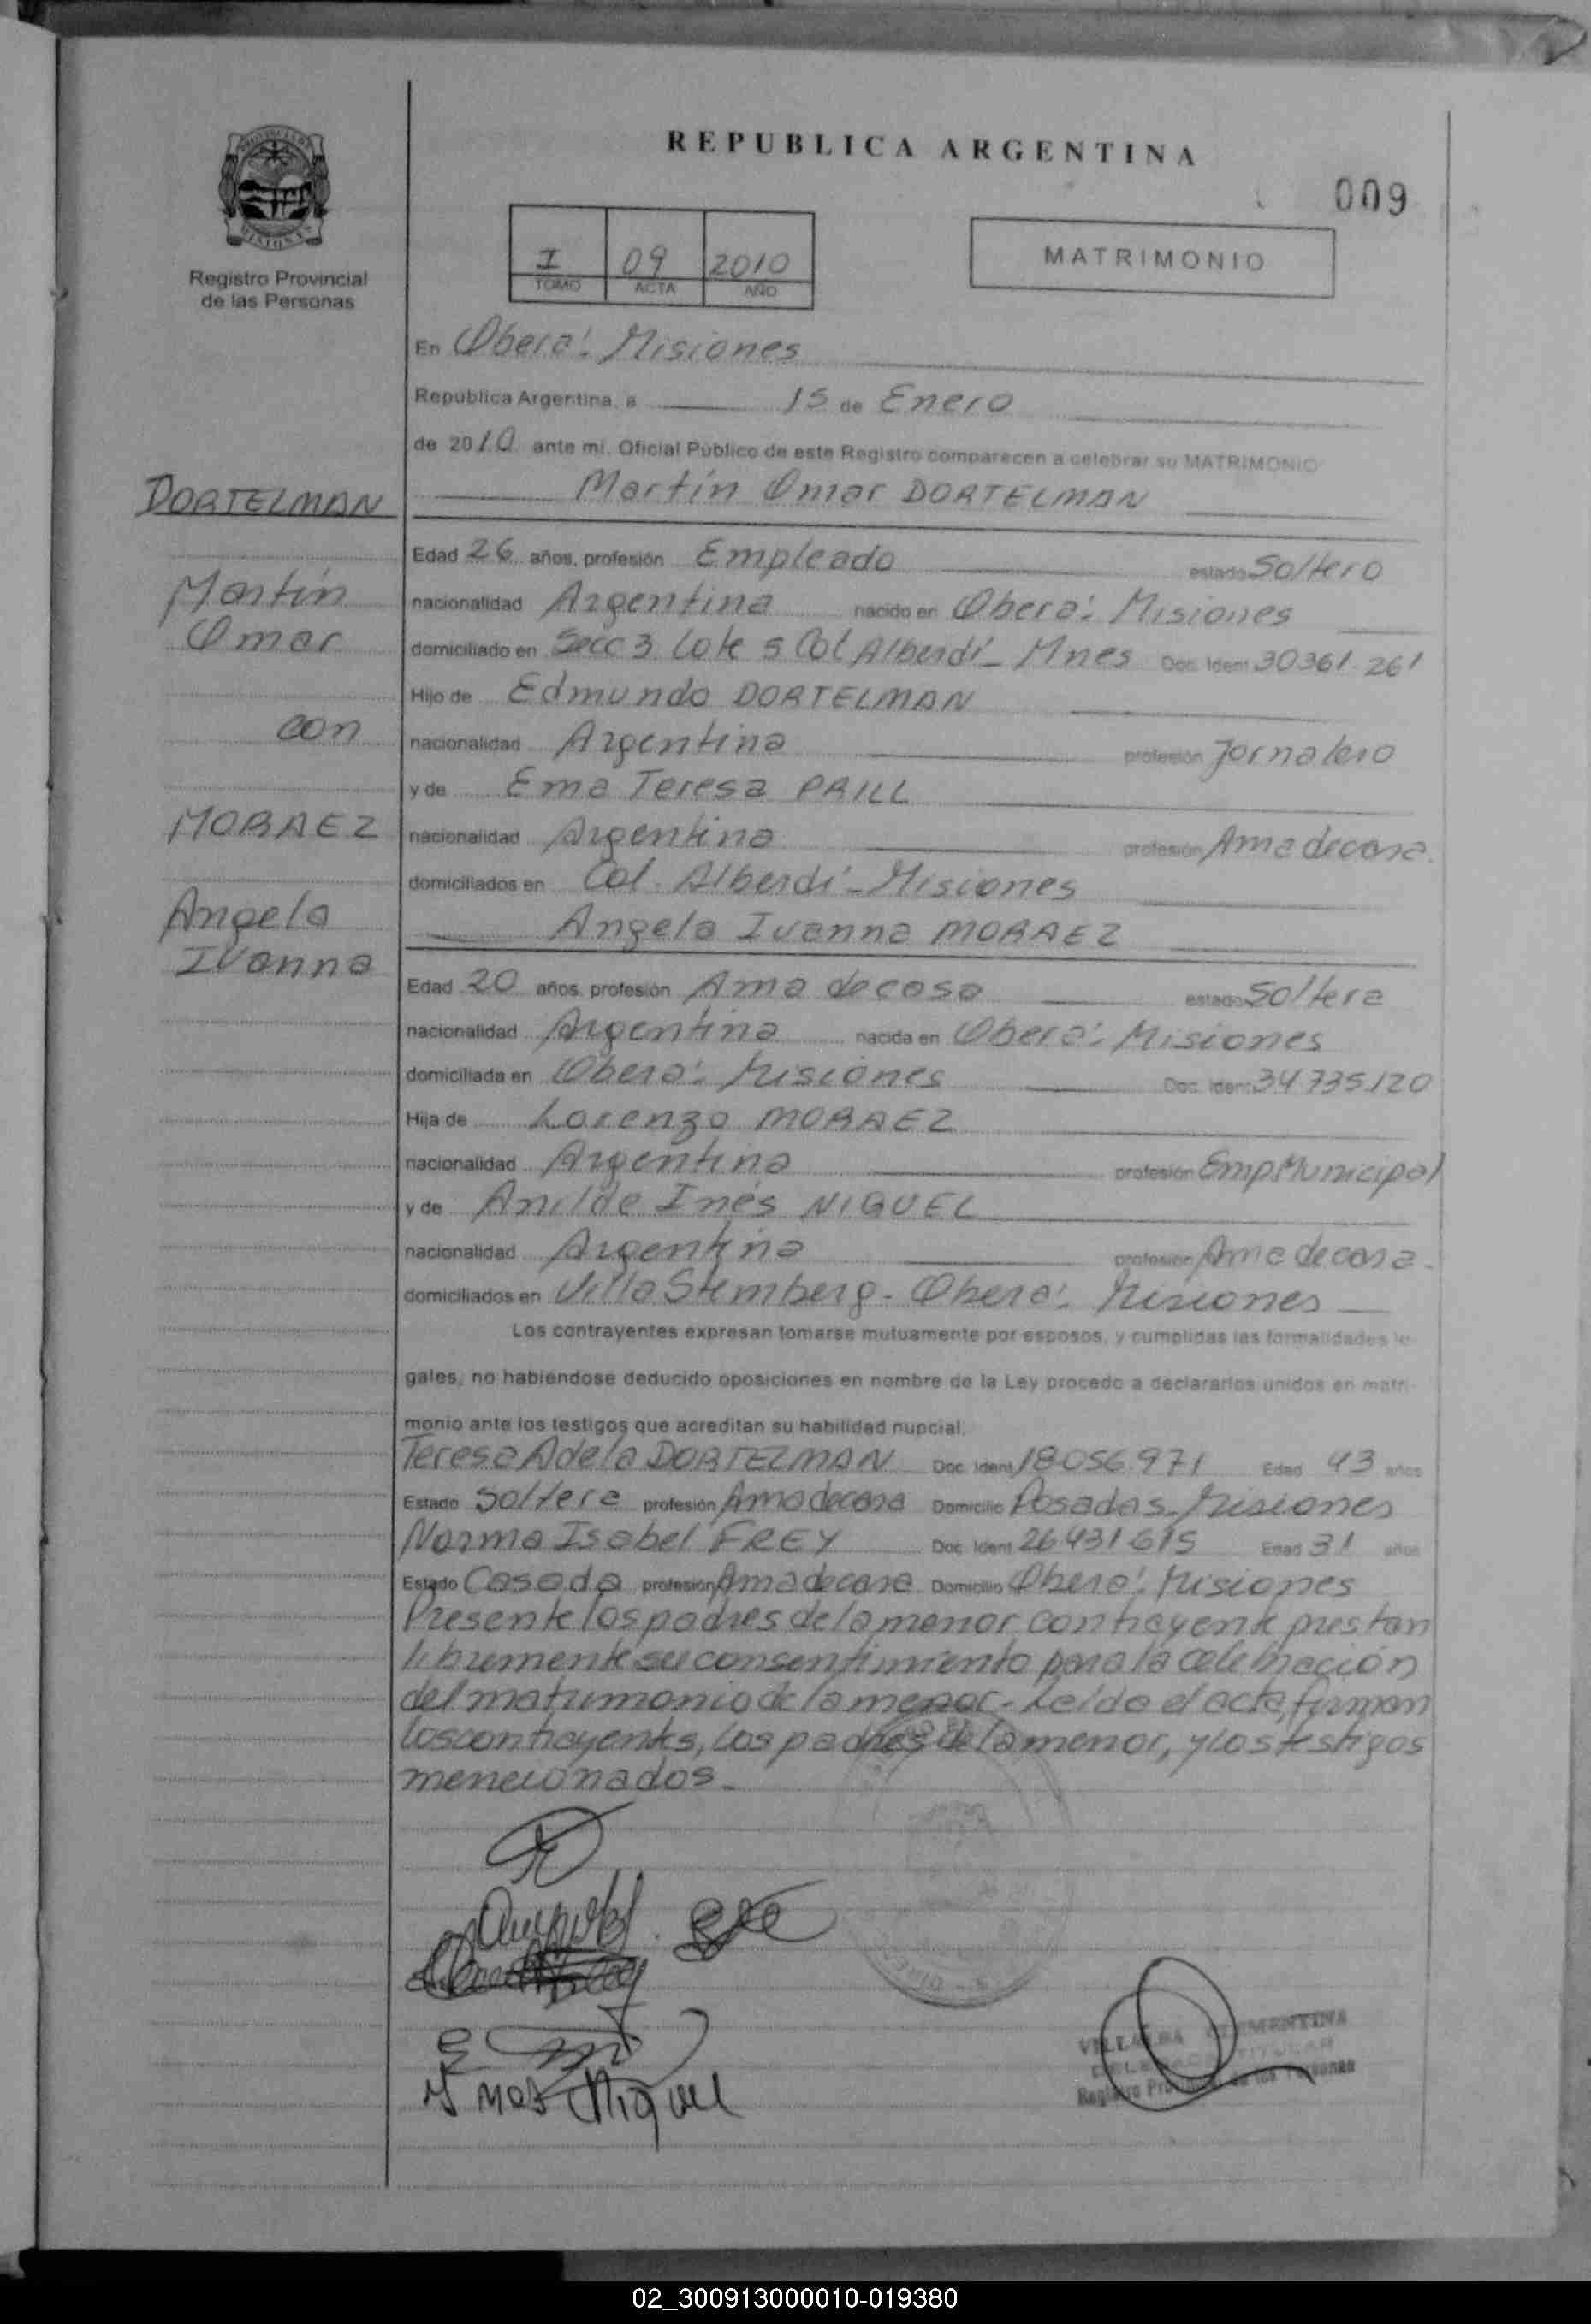 REPUBLICA ARGENTINA
009
I 09 2010
TOMO ACTA AÑO
MATRIMONIO
Registro Provincial
de las Personas
En Oberá: Misiones
República Argentina, a 15 de Enero
de 2010 ante mi, Oficial Público de este Registro comparecen a celebrar su MATRIMONIO
DORTELMAN
Martín
Omar
con
MORAEZ
Angela
Ivanna
Martín Omar DORTELMAN
Edad 26 años, profesión Empleado estado Soltero
nacionalidad Argentina nacido en Oberá: Misiones
domiciliado en Secc 3 Lote 5 Col Alberdi - Mnes Doc. Ident 30361.261
Hijo de Edmundo DORTELMAN
nacionalidad Argentina profesión Jornalero
y de Ema Teresa PRILL
nacionalidad Argentina profesión Ama de casa.
domiciliados en Col. Alberdi - Misiones
Angela Ivanna MORAEZ
Edad 20 años, profesión Ama de casa estado Soltera
nacionalidad Argentina nacida en Oberá: Misiones
domiciliada en Oberá: Misiones Doc. Ident 34735.120
Hija de Lorenzo MORAEZ
nacionalidad Argentina profesión Emp. Municipal
y de Anilde Inés NIQUEL
nacionalidad Argentina profesión Ama de casa.
domiciliados en Villa Stemberg - Oberá: Misiones
Los contrayentes expresan tomarse mutuamente por esposos, y cumplidas las formalidades le-
gales, no habiéndose deducido oposiciones en nombre de la Ley procedo a declararlos unidos en matri-
monio ante los testigos que acreditan su habilidad nupcial.
Teresa Adela DORTELMAN Doc. Ident 18056.971 Edad 43 años
Estado Soltera profesión Ama de casa Domicilio Posadas - Misiones
Norma Isabel FREY Doc. Ident 26431615 Edad 31 años
Estado Casada profesión Ama de casa Domicilio Oberá: Misiones
Presente los padres de la menor contrayente prestan
libremente su consentimiento para la celebración
del matrimonio de la menor - Leída el acta, firman
los contrayentes, los padres de la menor, y los testigos
mencionados -
Miquel
VILLALBA CLEMENTINA
Registro Provincial de las Personas
02_300913000010-019380